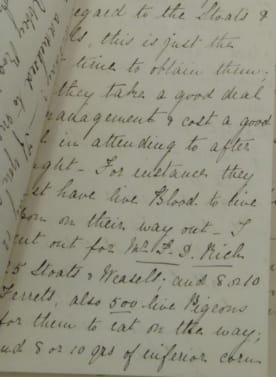 egard to the Stoats &
ls, this is just the
time to obtain them;
they take a good deal
anagement & cost a good
l in attending to after
ght - For instance they
st have live Blood to live
pon on their way out - I
nt out for Mr. F. D. Rich
25 Stoats & Weasels; and 8 or 10
Ferrets, also 500 live Pigeons
for them to eat on the way;
and 8 or 10 qrs of inferior corn